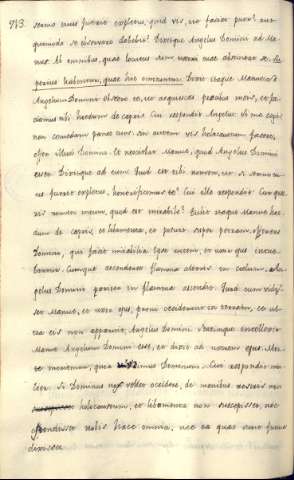 713. sermo tuus fuerit expletus, quid vis, ut faciat puer? aut
quomodo se observare debebit? Dixitque Angelus Domini ad Ma-
nue: Ab omnibus, quae locutus sum uxori tuae abstineat se.
Angelum Domini: Obsecro te, ut acquiescas precibus meis, et fa-
ciamus tibi haedum de capris. Cui respondit Angelus: Si me cogis,
non comedam panes tuos: sin autem vis holocaustum facere,
offer illud Domino. Et nesciebat Manue, quod Angelus Domini
esset. Dixitque ad eum: Quod est tibi nomen, ut, si sermo tu-
us fuerit expletus, honorificemus te? Cui ille respondit: Cur quae-
ris nomen meum, quod est mirabile? Tulit itaque Manue hae-
dum de capris, et libamenta, et posuit super petram, offerens
Domino, qui facit mirabilia: ipse autem, et uxor ejus intue-
bantur. Cumque ascenderet flamma altaris in coelum, An-
gelus Domini pariter in flamma ascendit. Quod cum vidis-
set Manue, et uxor ejus, proni ceciderunt in terram, et ul-
tra eis non apparuit Angelus Domini. Statimque intellexit
Manue Angelum Domini esse, et dixit ad uxorem suam: Mor-
te moriemur, quia vidimus Dominum. Cui respondit mu-
lier: Si Dominus nos vellet occidere, de manibus nostris non
holocaustum, et libamenta non suscepisset, nec
ostendisset nobis haec omnia, nec ea quae sunt futura
dixisset.